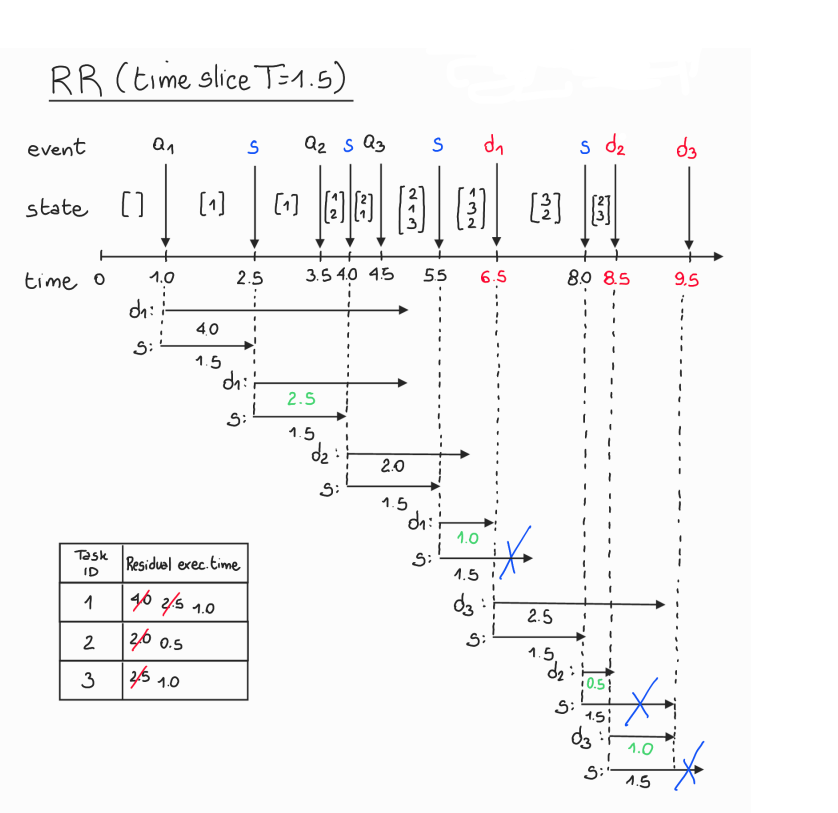 RR (time slice T=1.5)
event a1 s a2 s a3 s d1 s d2 d3
state [ ] [1] [1] [1 2] [2 1] [2 1 3] [1 3 2] [3 2] [2 3]
time 0 1.0 2.5 3.5 4.0 4.5 5.5 6.5 8.0 8.5 9.5
d1:
4.0
s:
1.5
d1:
2.5
s:
1.5
d2:
2.0
s:
1.5
d1:
1.0
s:
1.5
d3:
2.5
s:
1.5
d2:
0.5
s:
1.5
d3:
1.0
s:
1.5
Task ID Residual exec.time
1 4.0 2.5 1.0
2 2.0 0.5
3 2.5 1.0